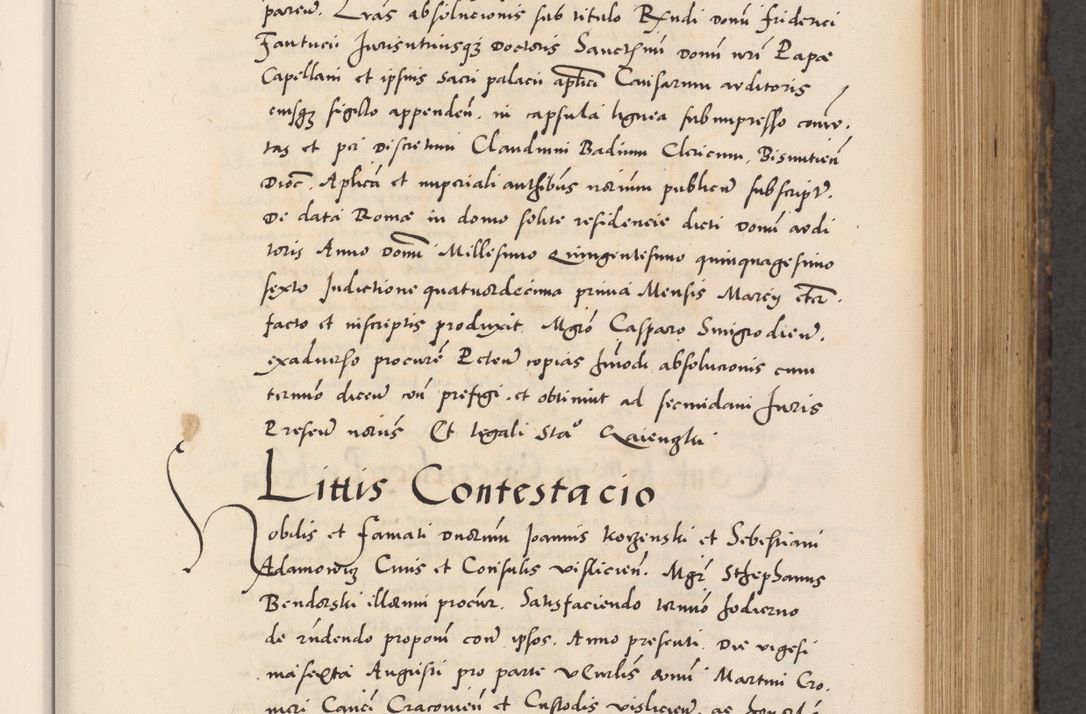 pareñ. Lras absolucionis sub titulo Rndi domi friderici
Fantucii Jurisutriusqz doctoris Sanctssmi domi nri Papæ
Capellani et ipsius sacri palacii aplici Causarum æditoris
eiusqz sigello appenden. in capsula lignea sub impresso com̄e.
tas et per discretum Claudium Badium Clericum. Bisuntien
dioc. Aplica et imperiali authibus notarium publicum subscript.
de data Romæ in domo solite residencie dicti domi ædi
toris Anno Domi Millesimo Quingentesimo quinquagesimo
sexto Indictione quatuordecima prima Mensis Marcij etcr.
facto et inscriptis produxit. Mgro Casparo Smigrodien.
exaduerso procure Peten copias hmodi absolucionis cum
termino dicen con prefigi. et obtinuit ad secundam Juris
Presen notarius Et legali Stao
Littis Contestacio
Nobilis et Famati dnorum Joannis Korzenski et Sebestiani
Adamowicz Ciuis et Consulis vislicien. Mgr Sthephanus
Bendorski illorum procur. Satisfaciendo termino hodierno
de rndendo proponi con ipsos. Anno presenti. Die vigesi
ma sexta Augusti pro parte vCurlis domi Martini Cro.
meri Canci Cracouien et Custodis vislicien. ac